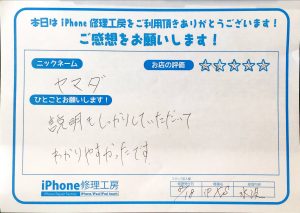 本日は iPhone 修理工房をご利用頂きありがとうございます！
ご感想をお願いします！
ニックネーム
お店の評価
ヤマダ
ひとことお願いします！
説明もしっかりしていただいて
わかりやすかったです
iPhone修理工房